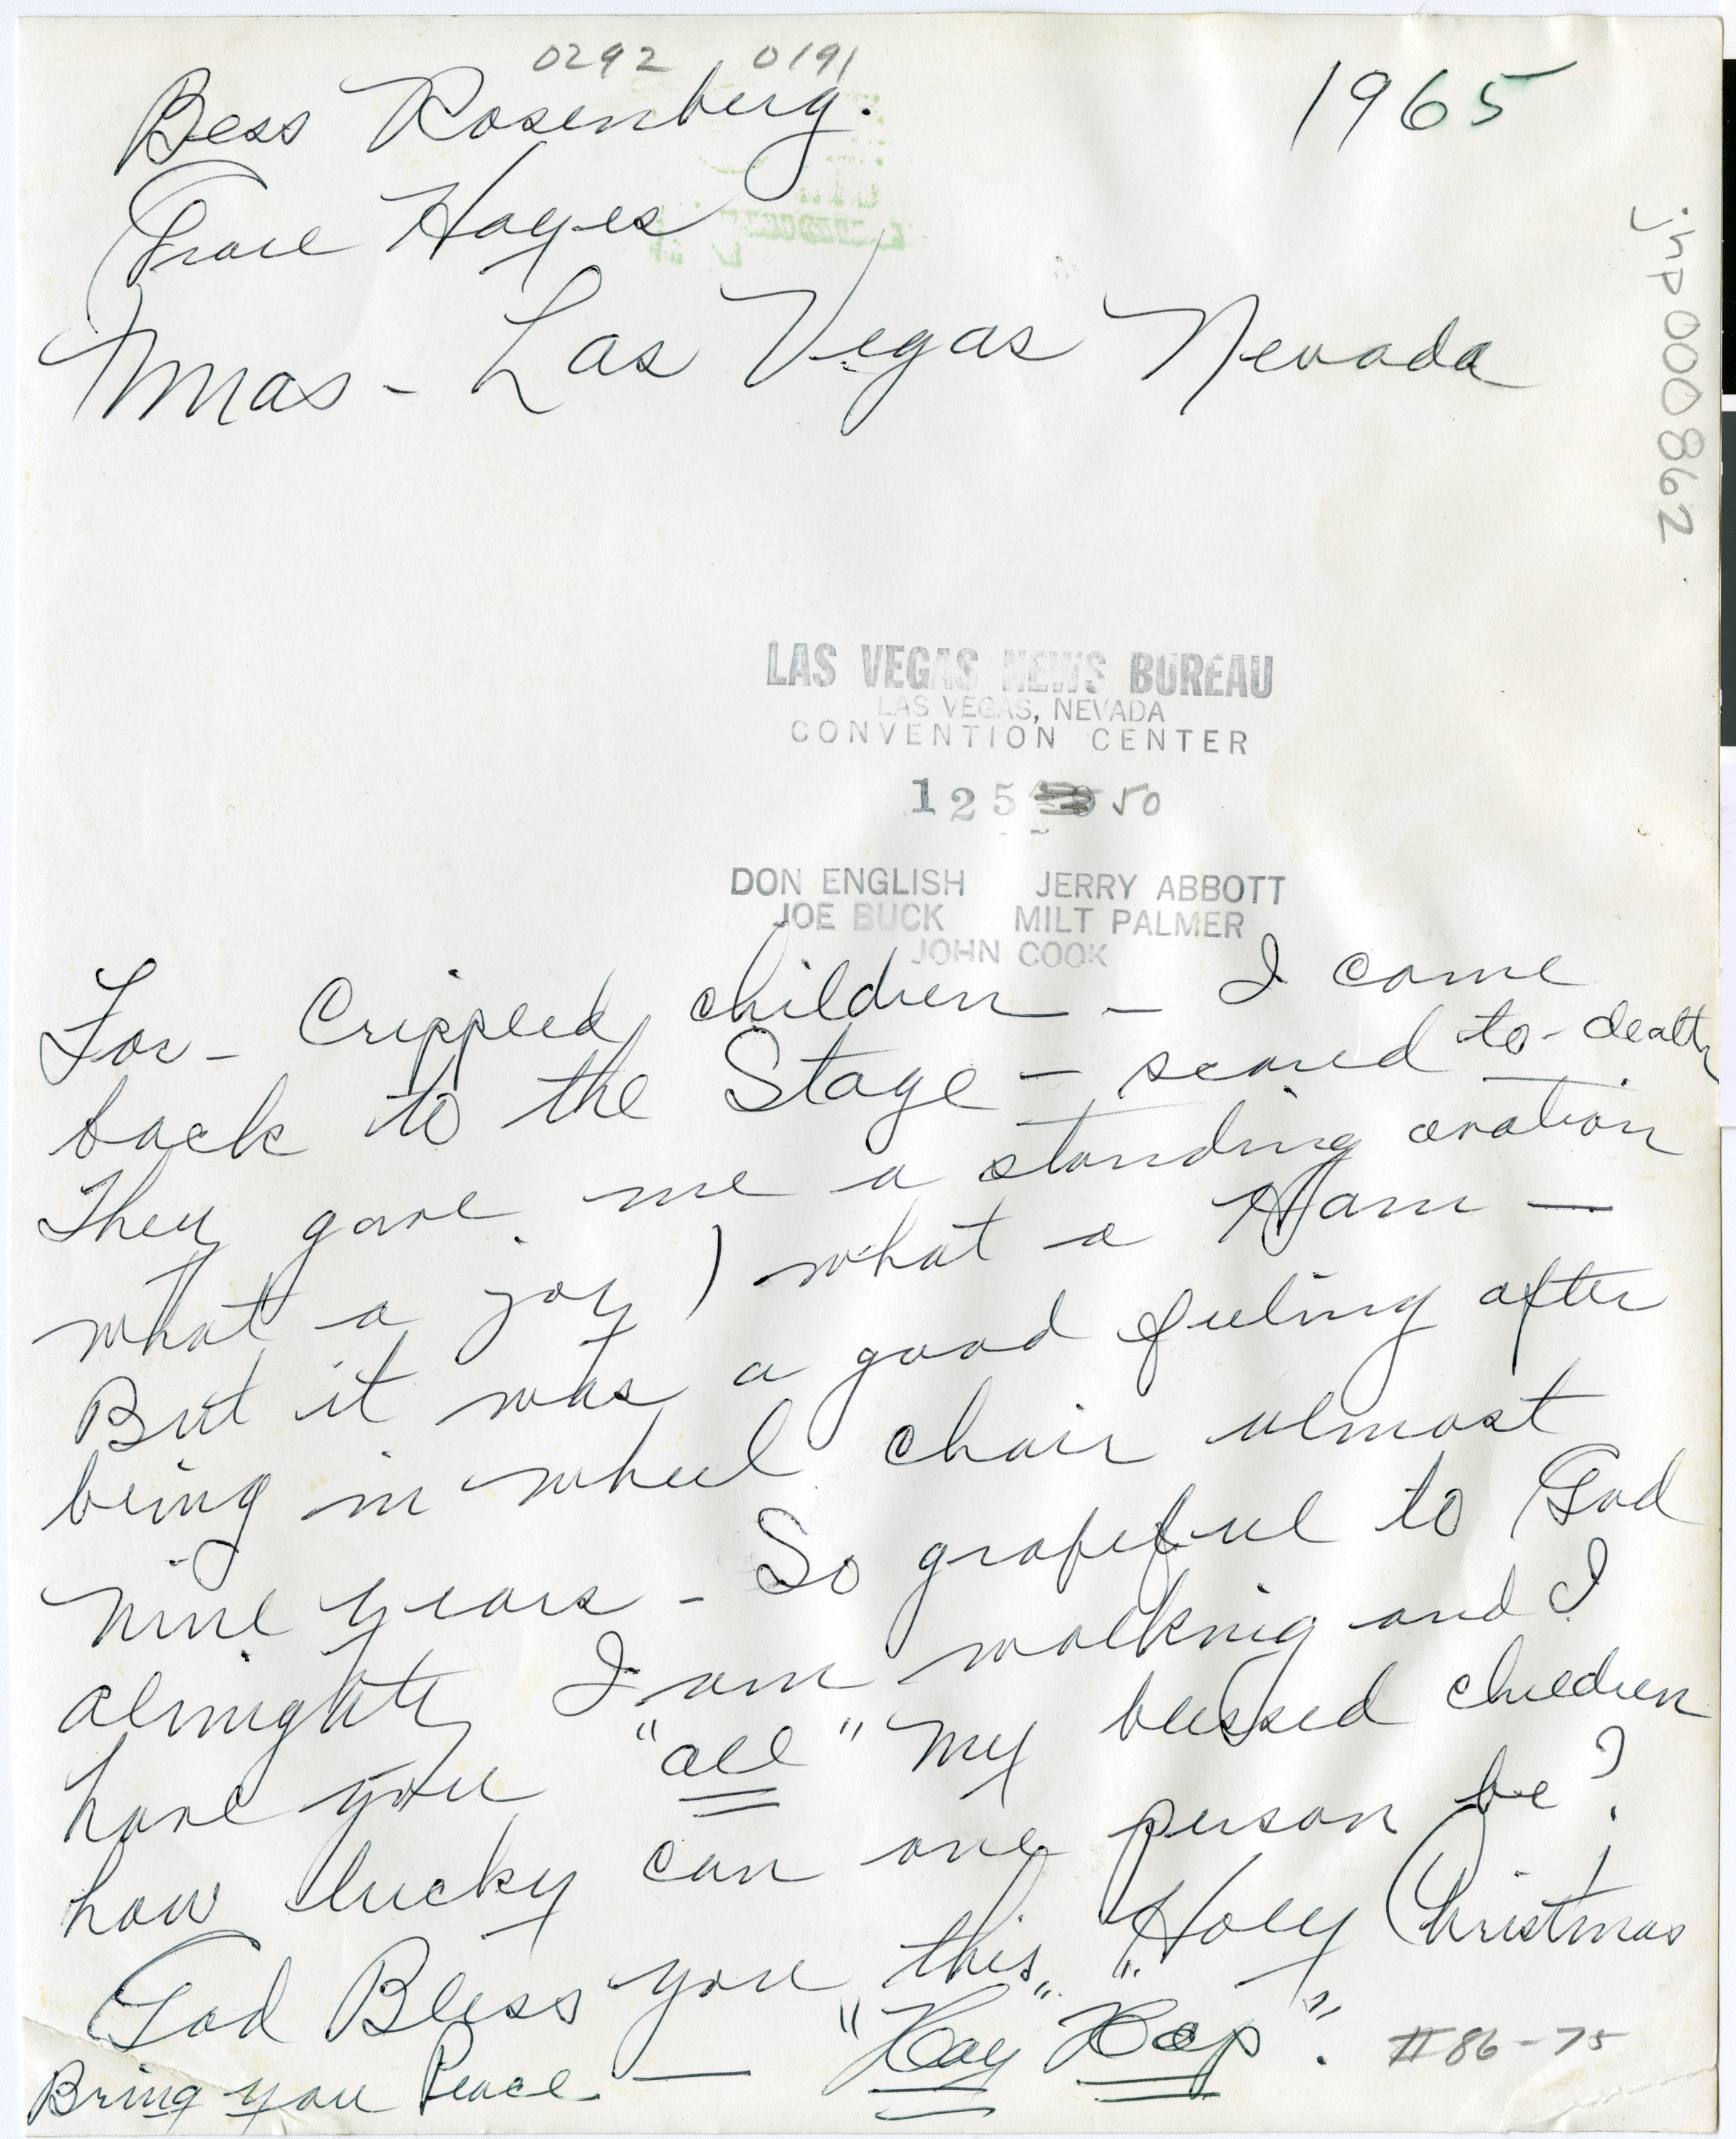 0292 0191
Bess Rosenberg.
1965
Grace Hayes
Xmas - Las Vegas Nevada
jhp000862
LAS VEGAS NEWS BUREAU
LAS VEGAS, NEVADA
CONVENTION CENTER
125 50
DON ENGLISH JERRY ABBOTT
JOE BUCK MILT PALMER
JOHN COOK
For - Crippled children - I come
back to the Stage - scared to-death
They gave me a standing ovation
what a joy ) what a Ham -
But it was a good feeling after
being in wheel chair almost
nine years - So grateful to God
almighty I am walking and I
have you "all" my blessed children
how lucky can one person be?
God Bless you this "Holy Christmas"
Bring you Peace - " ".
#86-75